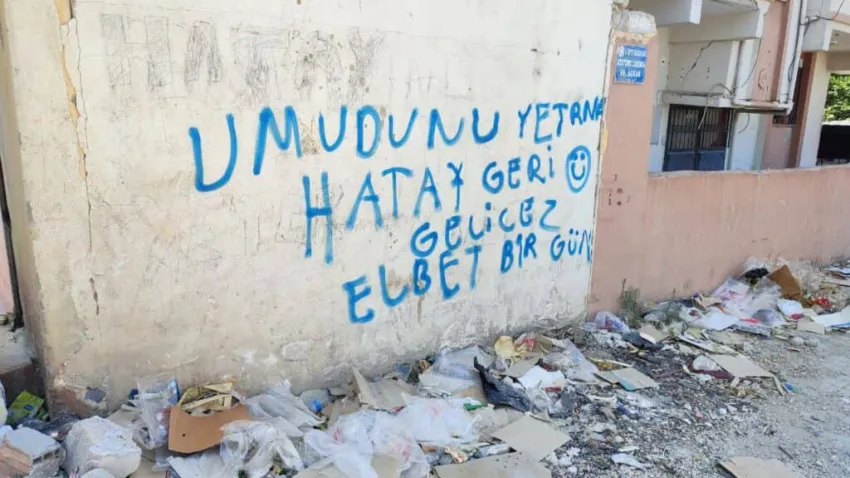 HATAY
UMUDUNU YETRME
HATAY GERİ
GELİCEZ
ELBET BİR GÜN